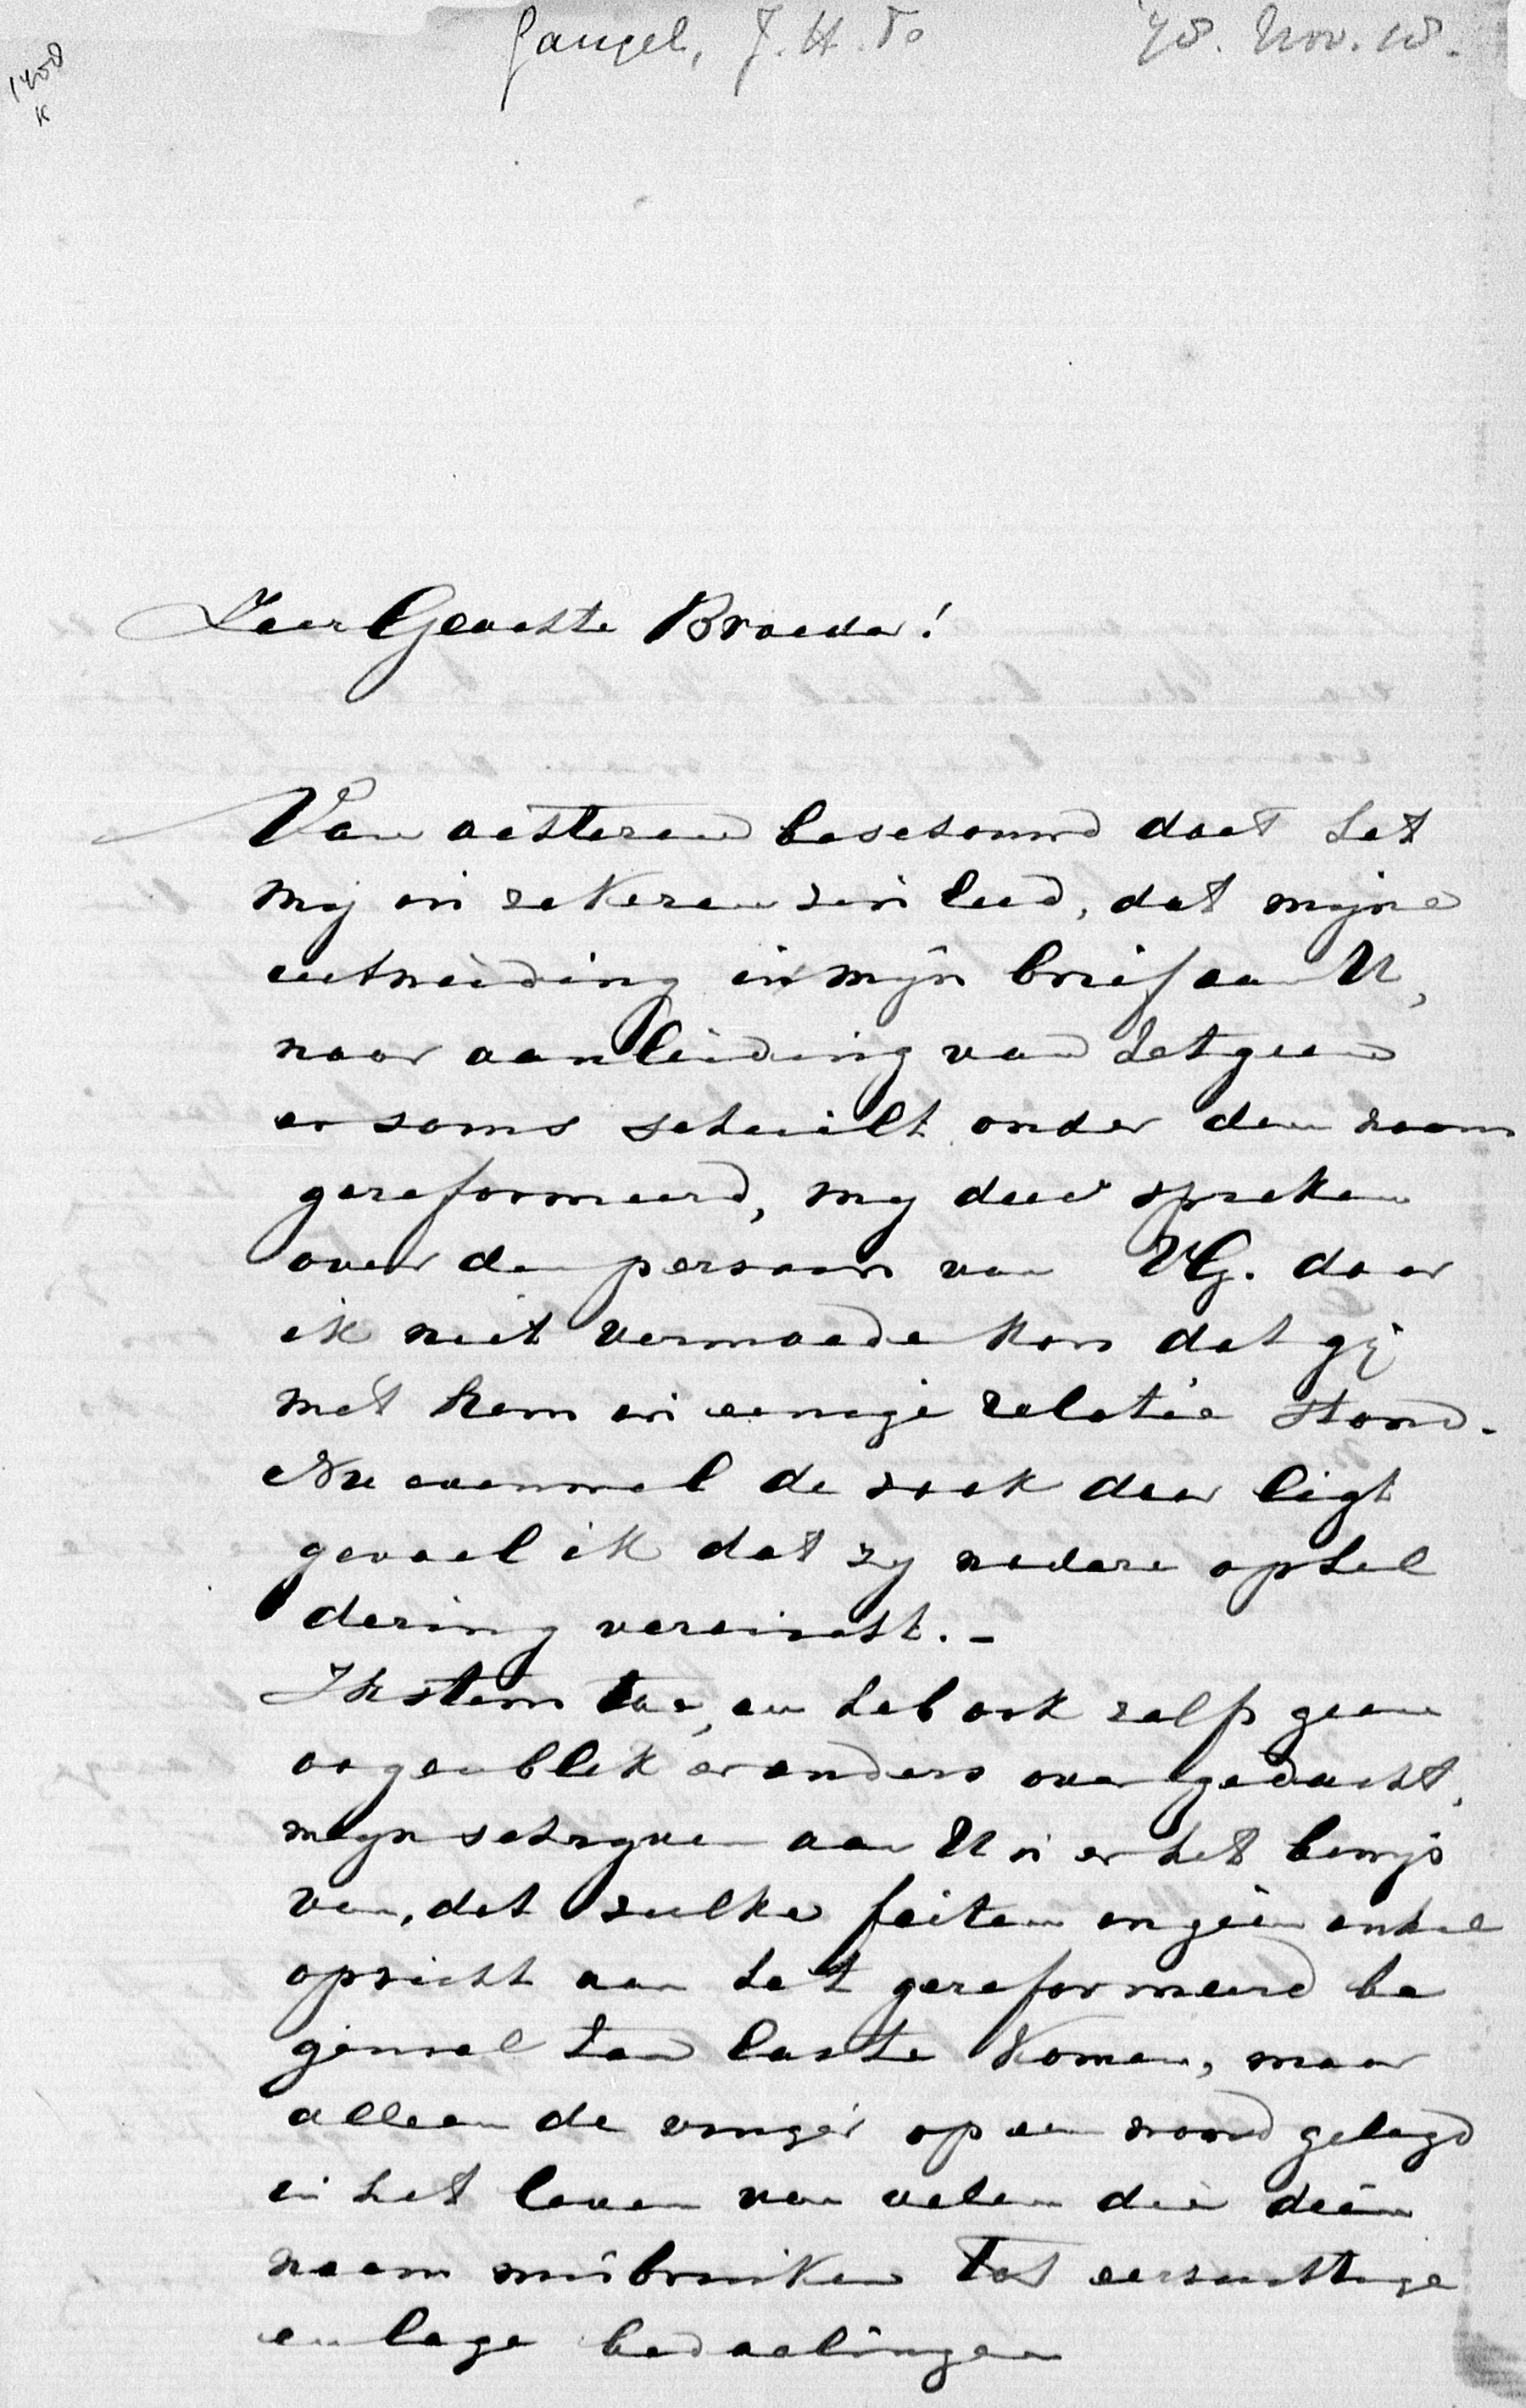 1408
K
Gangel, J. H. Ds
'78. Nov. 18.
Zeer Geachte Broeder!
Van achteren beschouwd doet het
mij in zekeren zin leed, dat mijne
uitweiding in mijn brief aan U,
naar aanleiding van hetgeen
er soms schuilt onder den naam
gereformeerd, mij deed spreken
over den persoon van VG. daar
ik niet vermoeden kon dat gij
met hem in eenige relatie stond.
Nu evenwel de zaak daar ligt
gevoel ik dat zij nadere ophel
dering vereischt. -
Ik stem toe, en heb ook zelfs geen
oogenblik er anders over gedacht,
mijn schrijven aan U is er het bewijs
van, dat zulke feiten in geen enkel
opzicht aan het gereformeerd be
ginsel ten laste komen, maar
alleen de vinger op een wond gelegd
in het leven van velen die dien
naam misbruiken tot eerzuchtige
en lage bedoelingen